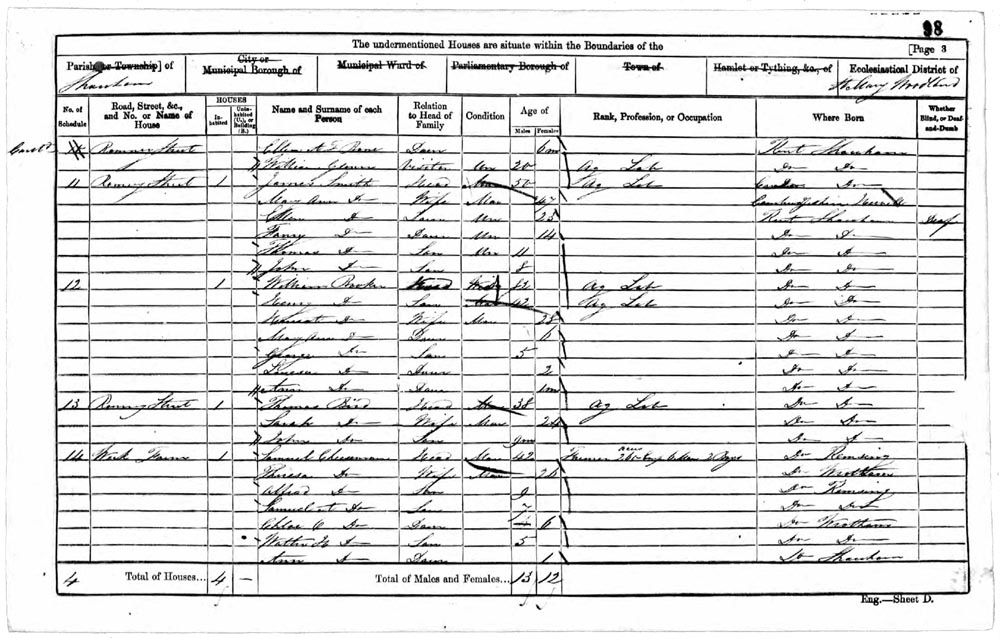 98
The undermentioned Houses are situate within the Boundaries of the
[Page 3
Parish [or Township] of
City or Municipal Borough of
Municipal Ward of
Parliamentary Borough of
Town of
Hamlet or Tything, &c., of
Ecclesiastical District of
Shoreham
St Mary Woodland
No. of Schedule
Road, Street, &c., and No. or Name of House
HOUSES
Inhabited
Uninhabited (U.), or Building (B.)
Name and Surname of each Person
Relation to Head of Family
Condition
Age of
Males
Females
Rank, Profession, or Occupation
Where Born
Whether Blind, or Deaf-and-Dumb
Street Daur 6m Kent Shoreham
William Visitor Un 20 Ag Lab Do Do
11 Romney Street 1 James Smith Head Mar 50 Ag Lab Do
Mary Ann Do Wife Mar 47 Cambridgeshire
Ellen Do Daur Un 25 Kent Shoreham Deaf
Fanny Do Daur Un 14 Do Do
Thomas Do Son Un 11 Do Do
John Do Son 8 Do Do
12 1 William Head Widr 82 Ag Lab Do Do
Henry Do Son Mar 42 Ag Lab Do Do
Harriet Do Wife Mar 28 Do Do
Mary Ann Do Daur 6 Do Do
George Do Son 5 Do Do
Louisa Do Daur 2 Do Do
Ann Do Daur 1m Do Do
13 Romney Street 1 Thomas Bird Head Mar 38 Ag Lab Do Do
Sarah Do Wife Mar 24 Do Do
John Do Son 9m Do Do
14 Farm 1 Samuel Cheeseman Head Mar 42 Farmer Acres Do Kemsing
Theresa Do Wife Mar 26 Do Wrotham
Alfred Do Son 9 Do Kemsing
Samuel Do Son 7 Do Do
Chloe C Do Daur 6 Do Wrotham
Walter H Do Son 5 Do Do
Ann Do Daur 1 Do Shoreham
4 Total of Houses... 4 – Total of Males and Females... 13 12
Eng.—Sheet D.